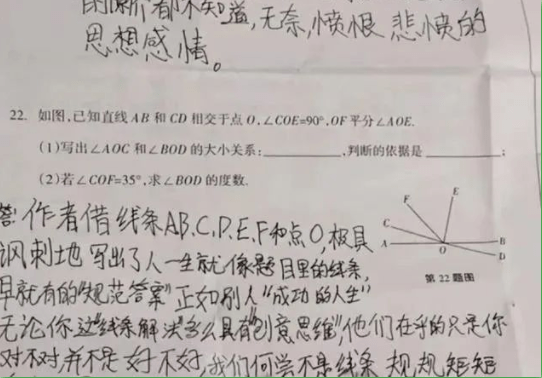 的嘶都不知道,无奈,愤恨 悲愤的
思想感情。
22. 如图,已知直线 AB 和 CD 相交于点 O,∠COE=90°,OF 平分∠AOE.
(1)写出∠AOC 和∠BOD 的大小关系:________,判断的依据是________;
(2)若∠COF=35°,求∠BOD 的度数.
答:作者借线条AB,C,D,E,F和点O,极具
讽刺地写出了人一生就像题目里的线条,
早就有的"规范答案"正如别人"成功的人生"
无论你这"线条解法"多么具有"创意思维",他们在乎的只是你
对不对,并不是好不好,我们何尝不是线条 规规矩矩
F
E
C
A
O
B
D
第 22 题图